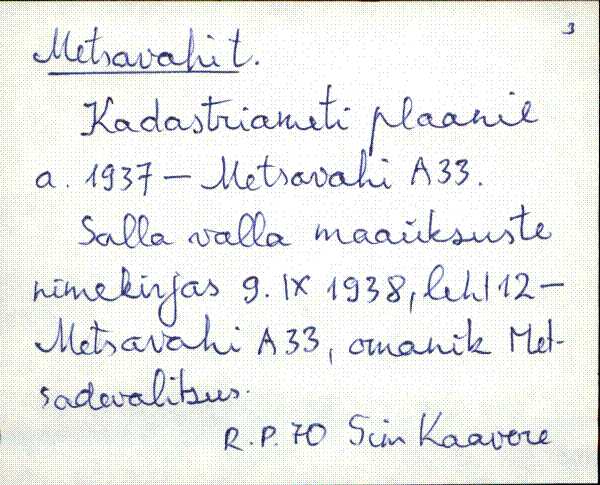 3
Metsavahi t.
Kadastriameti plaanil
a. 1937 – Metsavahi A33.
Salla valla maaüksuste
nimekirjas 9. IX 1938, lehl 12 –
Metsavahi A33, omanik Met-
sadevalitsus.
R.P. 70 Siin Kaavere